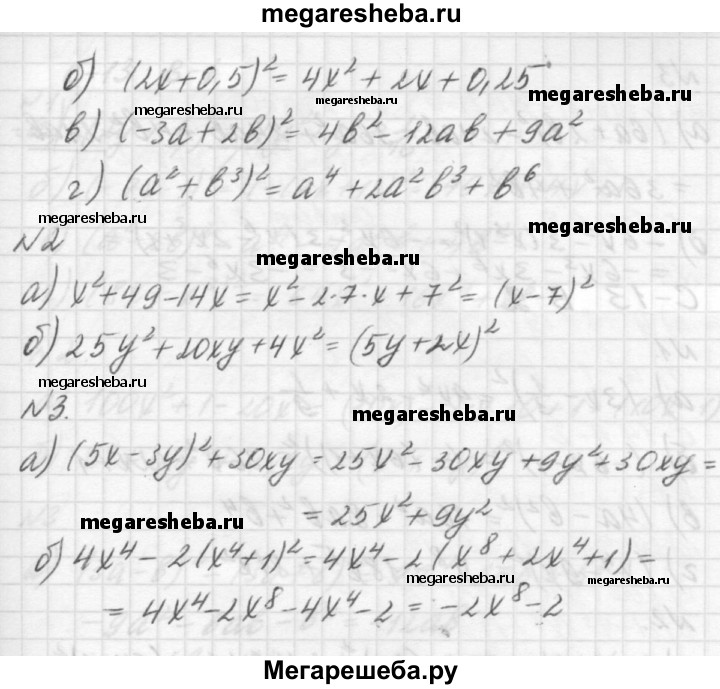 megaresheba.ru
б) (2x+0,5)²= 4x²+2x+0,25
megaresheba.ru megaresheba.ru megaresheba.ru
в) (-3a+2b)²= 4b²-12ab+9a²
г) (a²+b³)²= a⁴+2a²b³+b⁶
megaresheba.ru megaresheba.ru
N2
megaresheba.ru
а) x²+49-14x= x²-2·7·x+7²= (x-7)²
б) 25y²+20xy+4x²= (5y+2x)²
megaresheba.ru
N3. megaresheba.ru
а) (5x-3y)²+30xy=25x²-30xy+9y²+30xy=
=25x²+9y²
megaresheba.ru
б) 4x⁴-2(x⁴+1)²=4x⁴-2(x⁸+2x⁴+1)=
megaresheba.ru megaresheba.ru
= 4x⁴-2x⁸-4x⁴-2= -2x⁸-2
Мегарешеба.ру